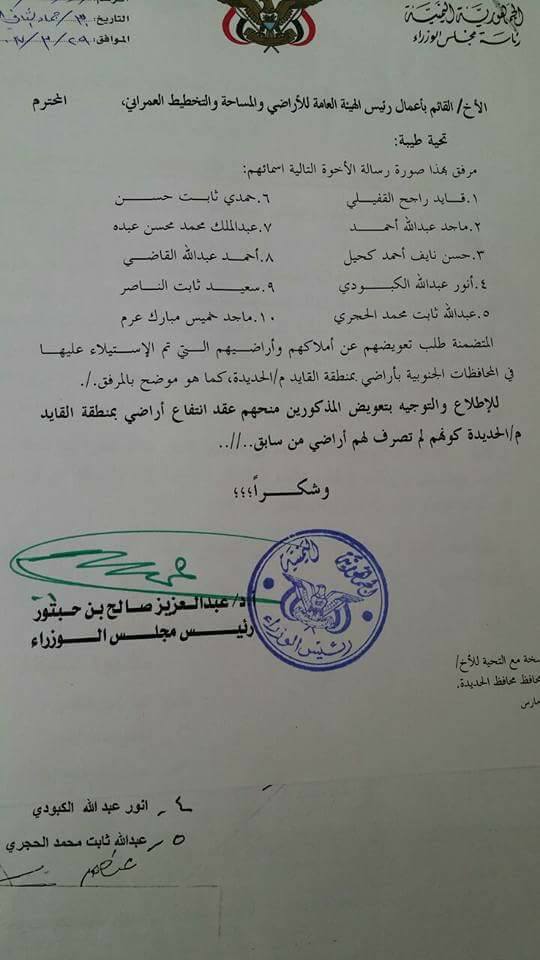 الجمهورية اليمنية
رئاسة مجلس الوزراء
التاريخ:
الموافق:
الأخ/ القائم بأعمال رئيس الهيئة العامة للأراضي والمساحة والتخطيط العمراني، المحترم
تحية طيبة:
مرفق بهذا صورة رسالة الأخوة التالية اسمائهم:
١. قايد راجح القفيلي
٢. ماجد عبدالله أحمد
٣. حسن نايف أحمد كحيل
٤. أنور عبدالله الكبودي
٥. عبدالله ثابت محمد الحجري
٦. حمدي ثابت حسن
٧. عبدالملك محمد محسن عبده
٨. أحمد عبدالله القاضي
٩. سعيد ثابت الناصر
١٠. ماجد خميس مبارك عرم
المتضمنة طلب تعويضهم عن أملاكهم وأراضيهم التي تم الإستيلاء عليها
في المحافظات الجنوبية بأراضي بمنطقة القايد م/الحديدة، كما هو موضح بالمرفق./.
للإطلاع والتوجيه بتعويض المذكورين منحهم عقد انتفاع أراضي بمنطقة القايد
م/الحديدة كونهم لم تصرف لهم أراضي من سابق..//..
وشكراً؛؛؛
أ.د/ عبدالعزيز صالح بن حبتور
رئيس مجلس الوزراء
الجمهورية اليمنية
رئيس الوزراء
سخة مع التحية للأخ/
محافظ محافظ الحديدة.
مارس
٤ـ انور عبد الله الكبودي
٥ـ عبدالله ثابت محمد الحجري